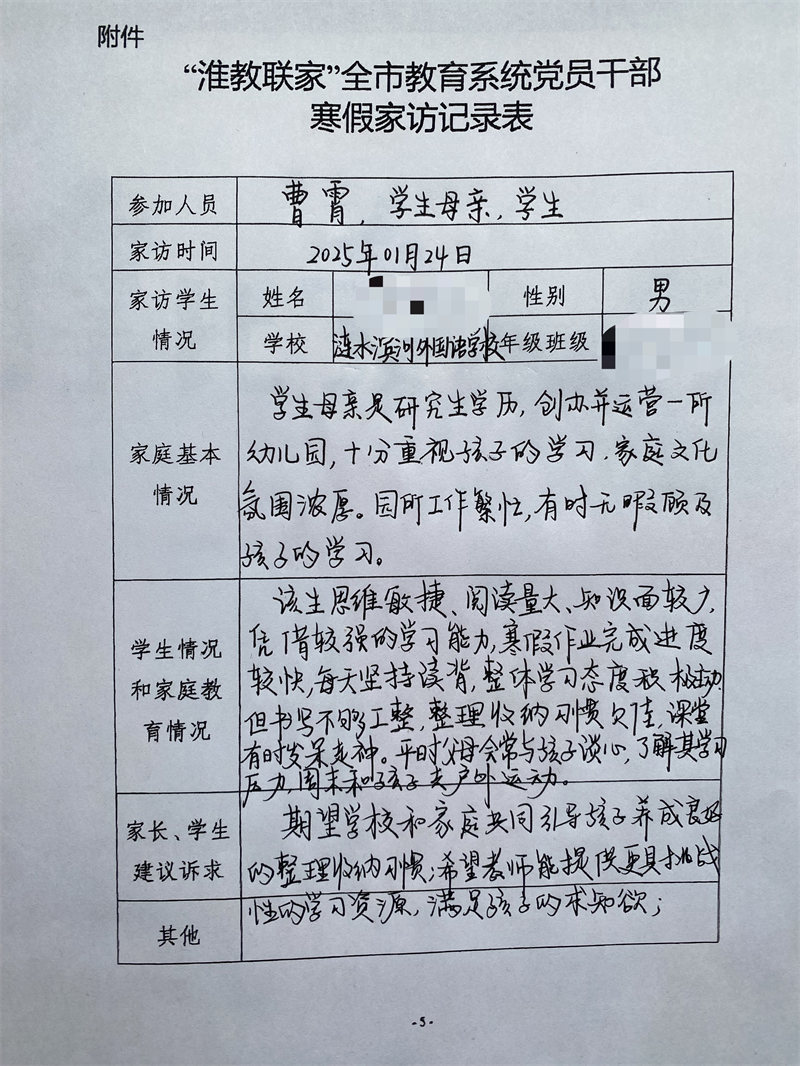 附件
“淮教联家”全市教育系统党员干部
寒假家访记录表
参加人员 曹霄，学生母亲，学生
家访时间 2025年01月24日
家访学生
情况
姓名 性别 男
学校 涟水滨河外国语学校 年级班级
家庭基本
情况
学生母亲是研究生学历，创办并运营一所
幼儿园，十分重视孩子的学习，家庭文化
氛围浓厚。园所工作繁忙，有时无暇顾及
孩子的学习。
学生情况
和家庭教
育情况
该生思维敏捷、阅读量大、知识面较广，
凭借较强的学习能力，寒假作业完成进度
较快，每天坚持读背，整体学习态度积极主动。
但书写不够工整，整理收纳习惯欠佳，课堂
有时发呆走神。平时父母会常与孩子谈心，了解其学习
压力，周末和孩子去户外运动。
家长、学生
建议诉求
期望学校和家庭共同引导孩子养成良好
的整理收纳习惯；希望老师能提供更具挑战
性的学习资源，满足孩子的求知欲；
其他
-5-